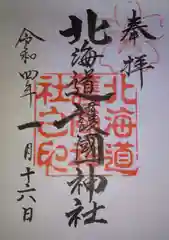 奉拝
北海道護國神社
令和四年
一月十六日
北海道
社之印